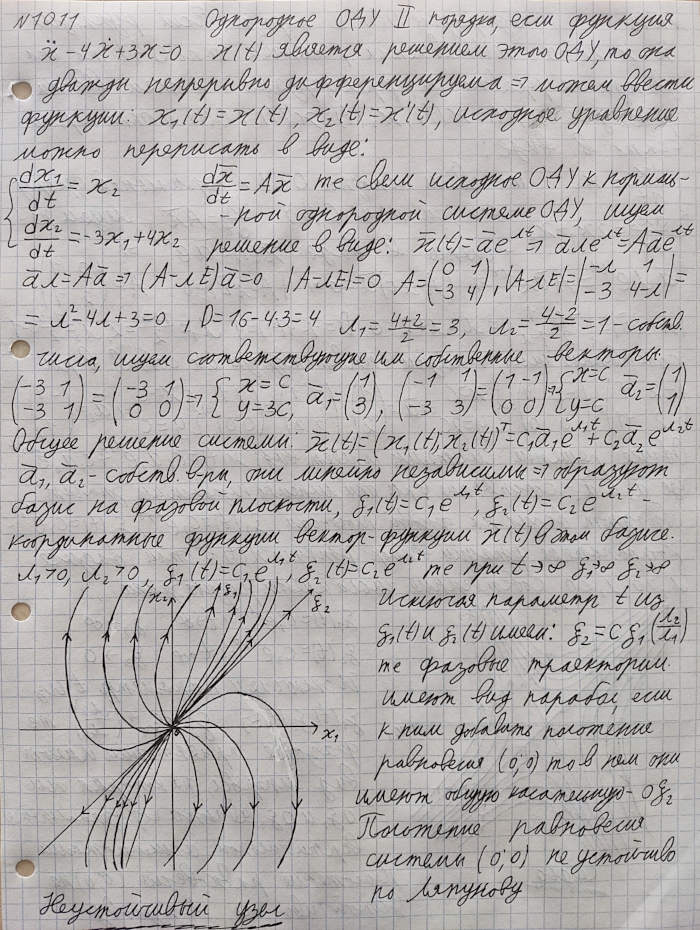 N1011 Однородное ОДУ II порядка, если функция
ẍ-4ẋ+3x=0 x(t) является решением этого ОДУ, то она
дважды непрерывно дифференцируема ⇒ можем ввести
функции: x₁(t)=x(t), x₂(t)=x'(t), исходное уравнение
можно переписать в виде:
{dx₁/dt = x₂ dx̄/dt = Ax̄ те свели исходное ОДУ к нормаль-
dx₂/dt = -3x₁+4x₂ -ной однородной системе ОДУ, ищем
решение в виде: x̄(t)=āe^λt ⇒ āλe^λt=Aāe^λt
āλ=Aā ⇒ (A-λE)ā=0 |A-λE|=0 A=(0 1; -3 4), |A-λE|=|-λ 1; -3 4-λ|=
= λ²-4λ+3=0, D=16-4·3=4 λ₁=(4+2)/2=3, λ₂=(4-2)/2=1 - собств.
числа, ищем соответствующие им собственные векторы.
(-3 1; -3 1)=(-3 1; 0 0)⇒{x=C y=3C, ā₁=(1; 3), (-1 1; -3 3)=(1 -1; 0 0)⇒{x=C y=C ā₂=(1; 1)
Общее решение системы: x̄(t)=(x₁(t); x₂(t))ᵀ=C₁ā₁e^λ₁t+C₂ā₂e^λ₂t
ā₁, ā₂ - собств. в-ры, они линейно независимы ⇒ образуют
базис на фазовой плоскости, ξ₁(t)=C₁e^λ₁t, ξ₂(t)=C₂e^λ₂t -
координатные функции вектор-функции x̄(t) в этом базисе.
λ₁>0, λ₂>0, ξ₁(t)=C₁e^λ₁t, ξ₂(t)=C₂e^λ₂t те при t→∞ ξ₁→∞ ξ₂→∞
x₂ ξ₁ ξ₂
x₁
0
Исключая параметр t из
ξ₁(t) и ξ₂(t) имеем: ξ₂=Cξ₁^(λ₂/λ₁)
те фазовые траектории
имеют вид парабол, если
к ним добавить положение
равновесия (0;0) то в нем они
имеют общую касательную - Oξ₂
Положение равновесия
системы (0;0) не устойчиво
по Ляпунову
Неустойчивый узел